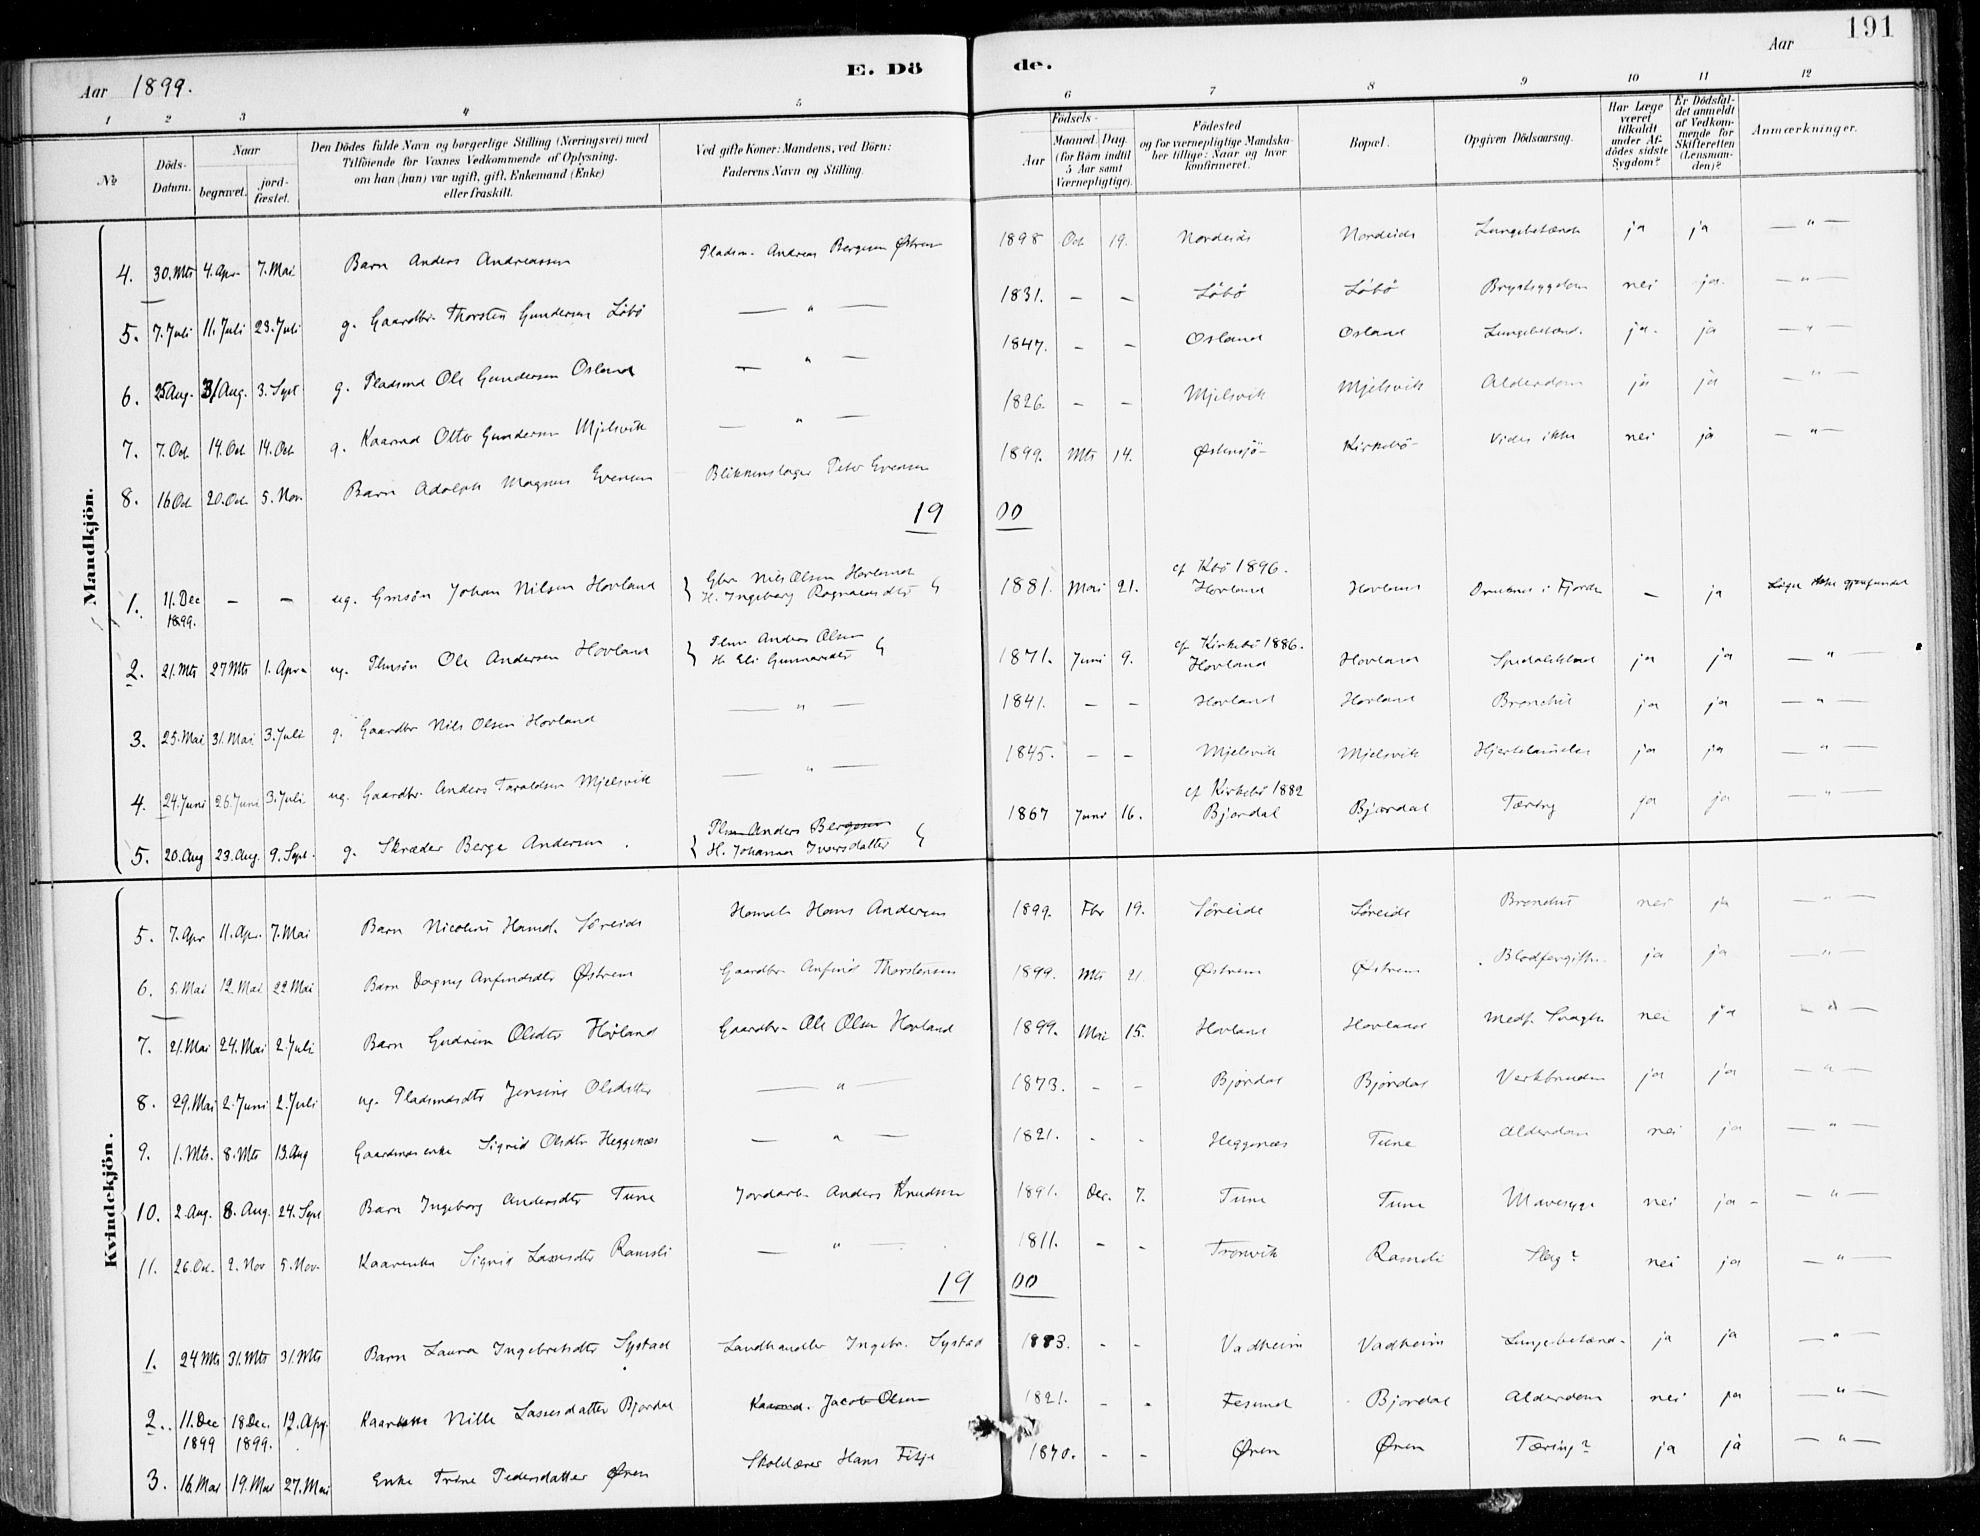 Aar 1899.
E. Dö de.
Aar
191
1 2 3 4 5 6 7 8 9 10 11 12
№
Döds-Datum.
Naar
begravet.
jord-fæstet.
Den Dödes fulde Navn og borgerlige Stilling (Næringsvei) med
Tilföiende for Voxnes Vedkommende af Oplysning,
om han (hun) var ugift, gift, Enkemand (Enke)
eller fraskilt.
Ved gifte Koner: Mandens, ved Börn:
Faderens Navn og Stilling.
Födsels-
Aar
Maaned. Dag.
(for Börn indtil
5 Aar samt
Værnepligtige).
Födested
og for værnepligtige Mandska-
ber tillige: Naar og hvor
konfirmeret.
Bopæl.
Opgiven Dödsaarsag.
Har Læge
været
tilkaldt
under Af-
dödes sidste
Sygdom?
Er Dödsfal-
det anmeldt
af Vedkom-
mende for
Skifteretten
(Lensman-
den)?
Anmærkninger.
Mandkjön.
4. 30. Mts 4. Apr 7. Mai Barn Anders Andreassen Pladsm. Andreas Bergesen Østrem 1898 Oct 19. Nordeide Nordeide Lungebetænd ja ja — " —
5. 7. Juli 11. Juli 23. Juli g. Gaardbr. Thorsten Gundersen Löbö — " — 1831. – – Löbö Löbö Brystsygdom nei ja. — " —
6. 25 Aug. 31 Aug. 3. Sept g. Pladsmd Ole Gundersen Osland — " — 1847. – – Osland Osland Lungebetænd. ja. ja — " —
7. 7. Oct 14. Oct 14. Oct g. Kaarmd Otto Gundersen Mjelsvik — " — 1826. – – Mjelsvik Mjelsvik Alderdom ja ja — " —
8. 16 Oct 20. Oct. 5. Nov. Barn Adolph Magnus Evensen Blikkenslager Peter Evensen 1899. Mts 14. Østensjö Kirkebö Vides ikke nei ja — " —
19 00
1. 11. Dec 1899. – – ug. Gmsön Johan Nilsen Hovland Gbr Nils Olsen Hovland
H. Ingeborg Ragnvaldsdtr 1881. Mai 21. cf Kbö 1896.
Hovland Hovland Druknet i Fjorden – ja Liget ikke gjenfundet
2. 21. Mts 27 Mts 1. Apr ug. Plmsön Ole Andersen Hovland Plm Anders Olsen
H. Eli Gunnarsdtr 1871. Juni 9. cf Kirkebö 1886.
Hovland Hovland Spedalskhed ja ja — " —
3. 25. Mai 31. Mai 3. Juli g. Gaardbr Nils Olsen Hovland — " — 1841. – – Hovland Hovland Bronchit ja ja — " —
4. 24. Juni 26. Juni 3. Juli ug. Gaardbr. Anders Taraldsen Mjelsvik — " — 1845. – – Mjelsvik Mjelsvik Hjertelamelse ja ja — " —
5. 20. Aug 23. Aug. 9. Sept. g. Skræder Berge Andersen Plm Anders Bergesen
H. Johanna Iversdatter 1867 Juni 16. cf Kirkebö 1882
Bjordal Bjordal Tæring ja ja — " —
Kvindekjön.
5. 7. Apr 11. Apr. 7. Mai Barn Nicoline Hansd. Söreide Hans Andersen 1899. Fbr 19. Söreide Söreide Bronchit nei ja — " —
6. 5. Mai 12. Mai 22 Mai Barn Dagny Anfindsdtr Østrem Gaardbr. Anfind Thorstensen 1899. Mts 21 Østrem Østrem Blodforgiftn. ja ja — " —
7. 21. Mai 24. Mai 2. Juli Barn Gudrun Olsdtr Hovland Gaardbr. Ole Olsen Hovland 1899. Mai 15. Hovland Hovland Medf. Svagh. nei ja — " —
8. 29. Mai 2. Juni 2. Juli ug. Pladsmdsdtr Jensine Olsdatter — " — 1873. – – Bjordal Bjordal Verkbruden ja ja — " —
9. 1. Mts. 8. Mts 13. Aug Gaardmdsenke Sigrid Olsdtr Heggenæs — " — 1821. – – Heggenæs Tune Alderdom nei ja — " —
10. 2. Aug. 8. Aug. 24. Sept Barn Ingeborg Andersdtr Tune Jordarb. Anders Knudsen 1891. Dec. 7. Tune Tune Mavesyge nei ja – — " —
11. 26. Oct. 2. Nov 5. Nov. Kaarenke Sigrid Lassesdtr Ramsli — " — 1811. – – Tronvik Ramsli Slag? nei ja — " —
19 00
1. 24 Mts 31. Mts 31. Mts Barn Laura Ingebretsdtr Systad Landhandler Ingebr. Systad 1883. – – Vadheim Vadheim Lungebetænd. ja ja — " —
2. 11. Dec 1899 18 Dec. 1899. 12. Apr. Kaarenke Nille Lassesdatter Bjordal Kaarmd. Jacob Olsen 1821. – – Fesund Bjordal Alderdom nei ja — " —
3. 16. Mai 19. Mai 27. Mai Enke Trine Pedersdatter Øren Skolelærer Hans Fitje 1870. – – Øren Øren Tæring? ja ja — " —